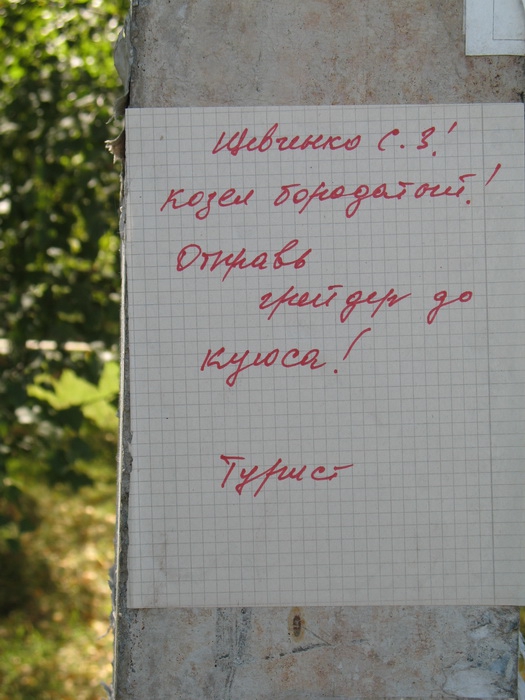 Шевченко С.З!
козел бородатый!
Отправь
грейдер до
Куюса!
Турист